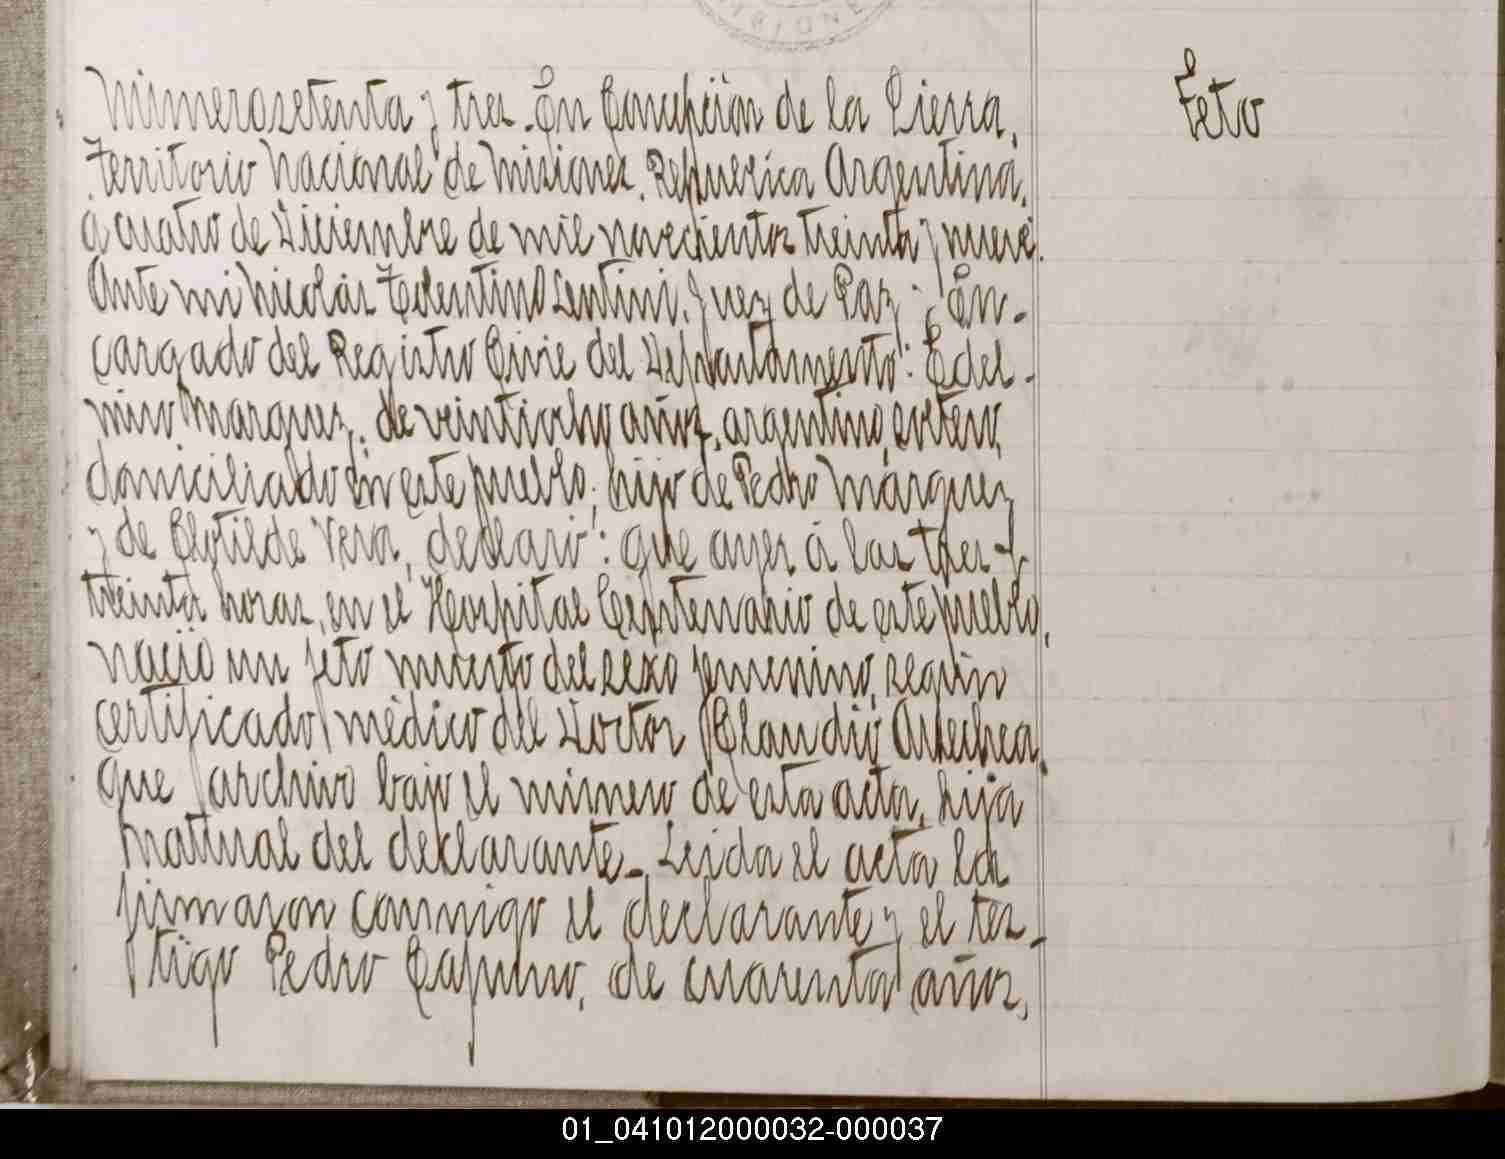 MISIONE
Feto
Número setenta y tres. En Concepción de la Sierra,
Territorio Nacional de Misiones, República Argentina,
a cuatro de Diciembre de mil novecientos treinta y nueve.
Ante mi Nicolás Tolentino Lentini, Juez de Paz y En-
cargado del Registro Civil del Departamento: Edel-
miro Marquez, de veintiocho años, argentino, soltero,
domiciliado en este pueblo, hijo de Pedro Márquez
y de Clotilde Vera, declaró: que ayer á las tres y
treinta horas, en el Hospital Centenario de este pueblo,
nació un feto muerto del sexo femenino, según
certificado médico del Doctor Claudio Arrechea
que archivo bajo el número de esta acta, hija
natural del declarante. Leida el acta la
firmaron conmigo el declarante y el tes-
tigo Pedro Capurro, de cuarenta años,
01_041012000032-000037